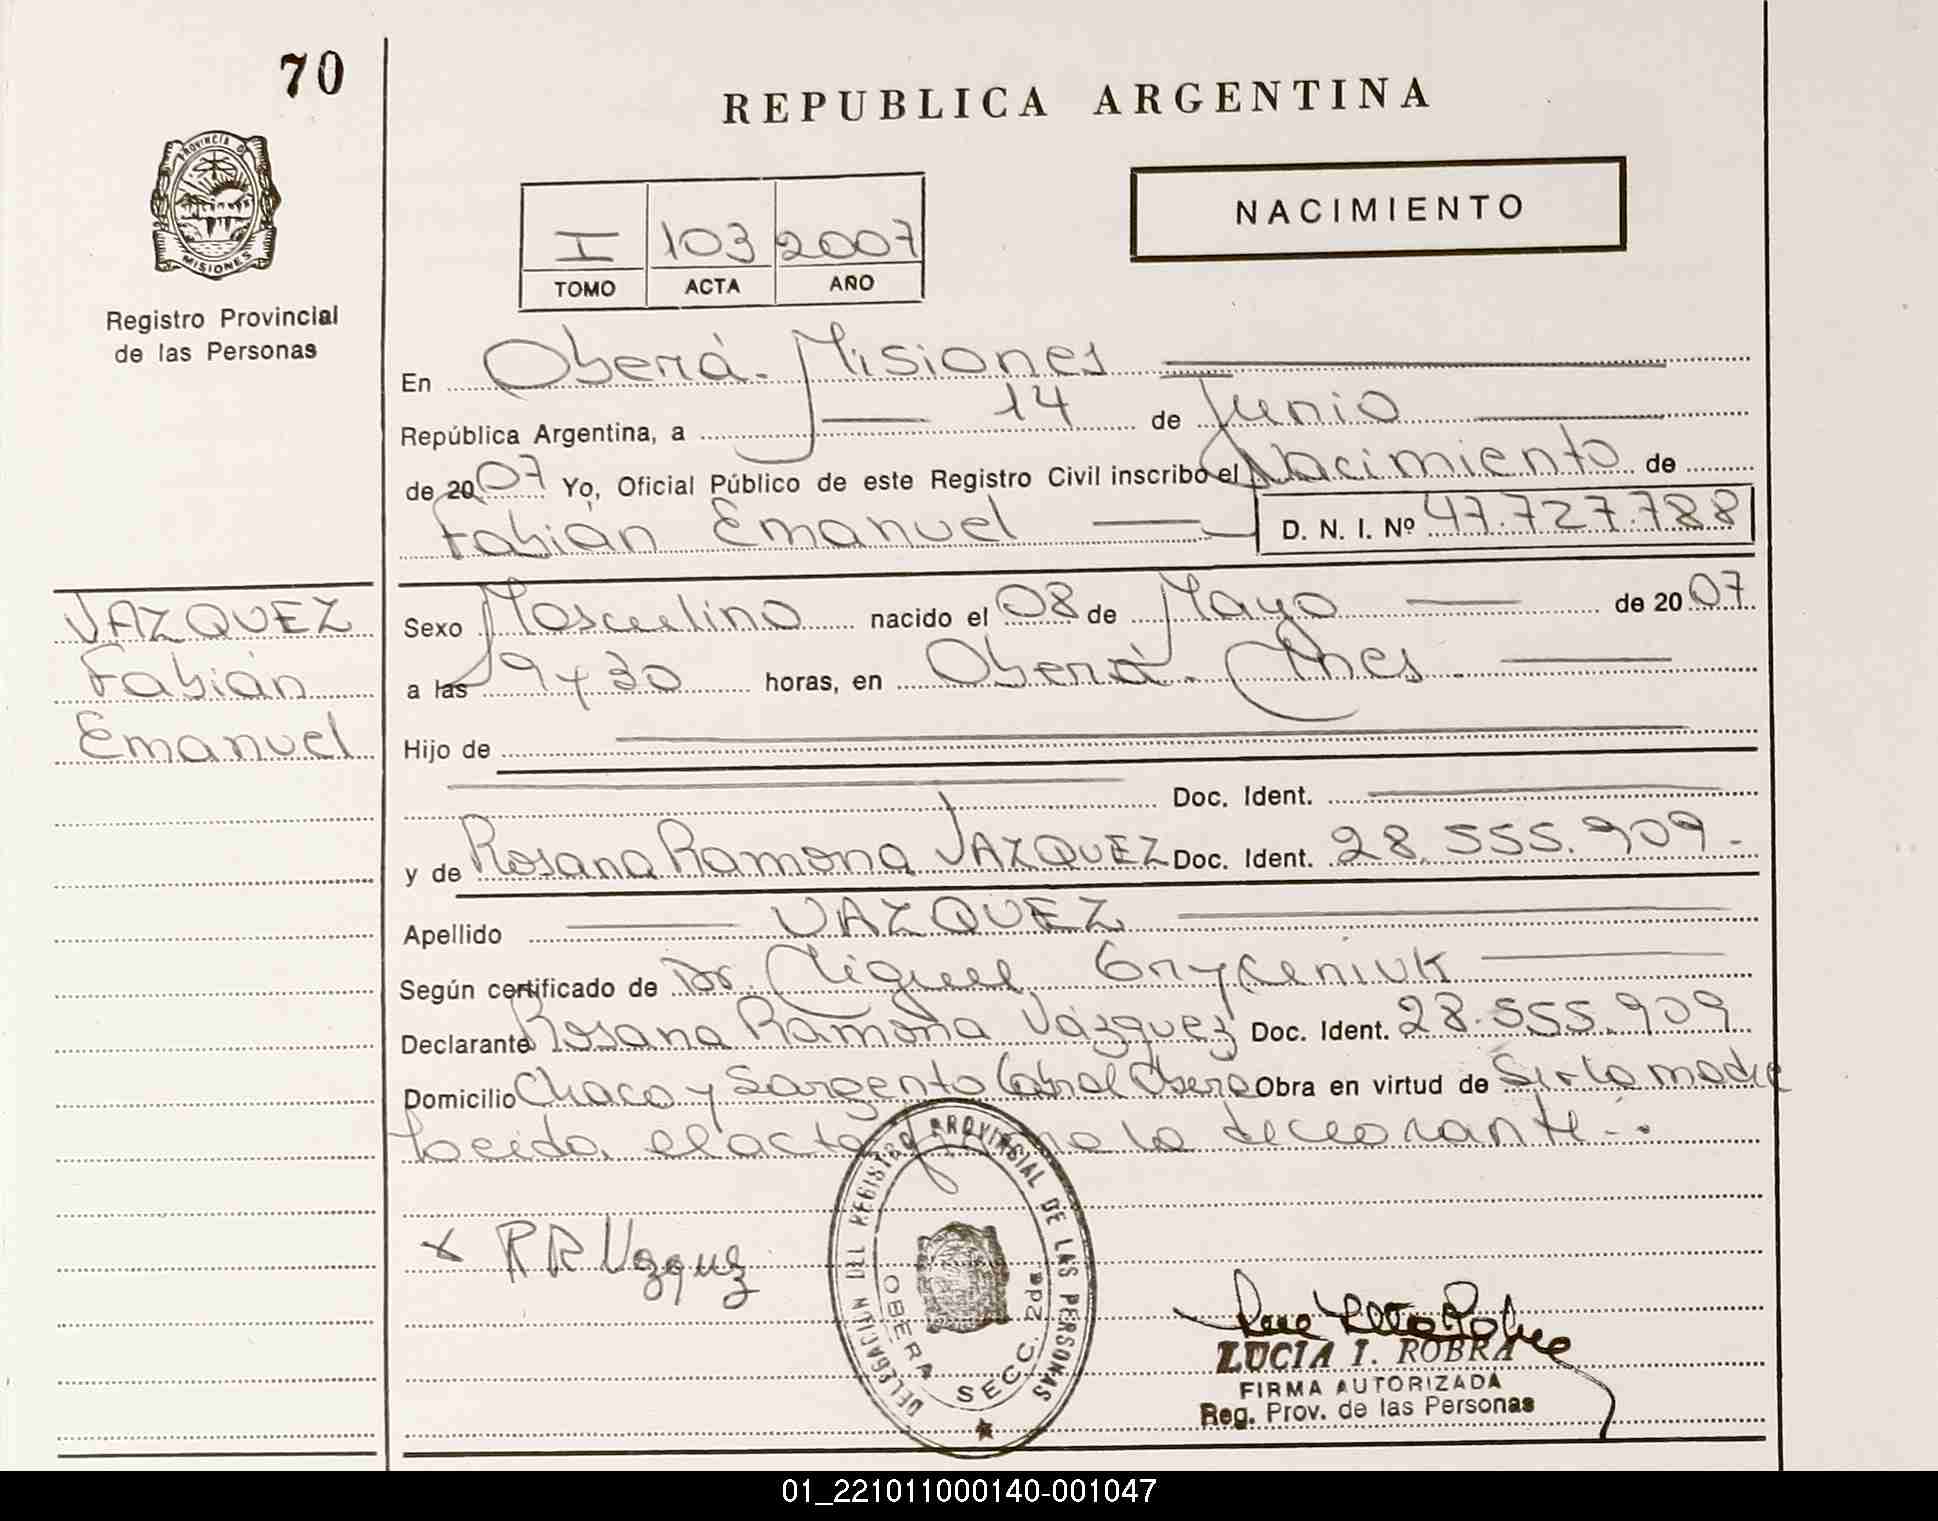 70
REPUBLICA ARGENTINA
PROVINCIA D
MISIONES
Registro Provincial
de las Personas
NACIMIENTO
I 103 2007
TOMO ACTA AÑO
En Oberá. Misiones
República Argentina, a 14 de Junio
de 2007 Yo, Oficial Público de este Registro Civil inscribo el Nacimiento de
Fabián Emanuel D. N. I. Nº 47.727.788
VAZQUEZ
Fabián
Emanuel
Sexo Masculino nacido el 08 de Mayo de 2007
a las 9 y 30 horas, en Oberá. Mnes
Hijo de
Doc. Ident.
y de Rosana Ramona VAZQUEZ Doc. Ident. 28.555.909.-
Apellido VAZQUEZ
Según certificado de Dr. Miguel Gryceniuk
Declarante Rosana Ramona Vázquez Doc. Ident. 28.555.909
Domicilio Chaco y Sargento Cabral Oberá Obra en virtud de Ser la madre
Leida el acta la declarante.-
x R R Vazquez
DELEGACION DEL REGISTRO PROVINCIAL DE LAS PERSONAS
OBERA SECC. 2da
LUCIA I. ROBRA
FIRMA AUTORIZADA
Reg. Prov. de las Personas
01_221011000140-001047